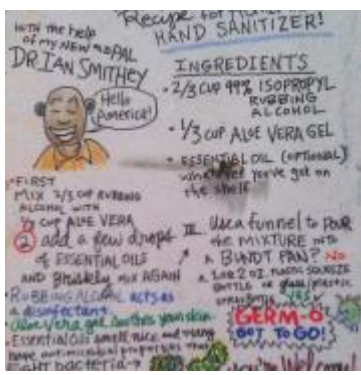 Recipe for
HAND SANITIZER!
WITH the help
of my NEW PAL
DR. IAN SMITHEY
Hello
America!
INGREDIENTS
• 2/3 CUP 99% ISOPROPYL
RUBBING
ALCOHOL
• 1/3 CUP ALOE VERA GEL
• ESSENTIAL OIL (OPTIONAL)
whatever you've got on
the shelf
• FIRST
MIX 2/3 CUP RUBBING
ALCOHOL WITH
1/3 CUP ALOE VERA
2 add a few drops
of ESSENTIAL OILS
AND Briskly MIX AGAIN
III. Use a funnel to POUR
the MIXTURE into
a BUNDT PAN? NO
a 1 OR 2 OZ. PLASTIC SQUEEZE
BOTTLE or glass/plastic
YES
• RUBBING ALCOHOL ACTS AS
a disinfectant
• Aloe Vera gel soothes your skin
• Essential Oils smell nice and many
have antimicrobial properties that
FIGHT bacteria→
GERM-O
GOT TO GO!
you're Welcome!